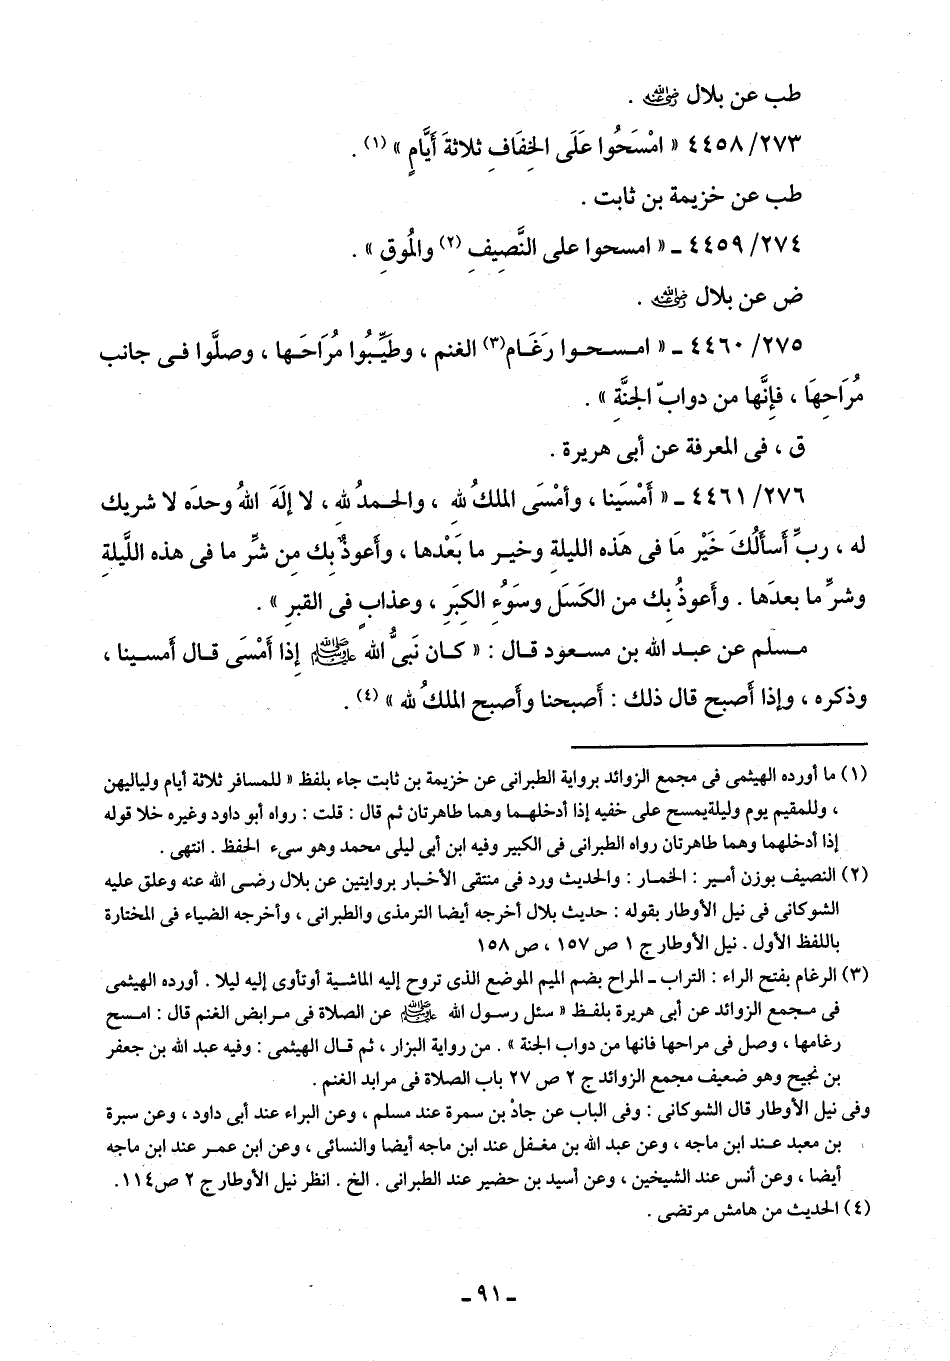 طب عن بلال ﵁ .
٤٤٥٨/٢٧٣ « امْسَحُوا عَلَى الخِفَافِ ثلاثةَ أَيَّامٍ » (١) .
طب عن خزيمة بن ثابت .
٤٤٥٩/٢٧٤ ـ « امسحوا على النَّصِيفِ (٢) والمُوقِ » .
ض عن بلال ﵁ .
٤٤٦٠/٢٧٥ ـ « امسحوا رَغَام(٣) الغنم ، وطَيِّبُوا مُرَاحَها ، وصلُّوا فى جانب
مُرَاحِهَا ، فإِنَّها من دوابّ الجنَّةِ » .
ق ، فى المعرفة عن أبى هريرة .
٤٤٦١/٢٧٦ ـ « أَمْسَينا ، وأمْسَى الملكُ للهِ ، والحمدُ للهِ ، لا إلَهَ اللهُ وحدَه لا شريك
له ، ربِّ أسأَلُكَ خَيْر مَا فى هَذه الليلةِ وخير ما بَعْدها ، وأَعوذُ بِك مِن شرِّ ما فى هذه اللَّيلةِ
وشرِّ ما بعدَها . وأَعوذُ بِك من الكَسَل وسَوُءِ الكِبَرِ ، وعذابٍ فى القبرِ » .
مسلم عن عبد الله بن مسعود قال : « كان نَبىُّ الله ﷺ إِذا أَمْسَى قال أَمسينا ،
وذكره ، وإذا أَصبح قال ذلك : أَصبحنا وأَصبح الملكُ لله » (٤) .
(١) ما أورده الهيثمى فى مجمع الزوائد برواية الطبرانى عن خزيمة بن ثابت جاء بلفظ « للمسافر ثلاثة أيام ولياليهن
، وللمقيم يوم وليلة يمسح على خفيه إذا أدخلهما وهما طاهرتان ثم قال : قلت : رواه أبو داود وغيره خلا قوله
إذا أدخلهما وهما طاهرتان رواه الطبرانى فى الكبير وفيه ابن أبى ليلى محمد وهو سىء الحفظ . انتهى .
(٢) النصيف بوزن أمير : الخمار : والحديث ورد فى منتقى الأخبار بروايتين عن بلال رضى الله عنه وعلق عليه
الشوكانى فى نيل الأوطار بقوله : حديث بلال أخرجه أيضا الترمذى والطبرانى ، وأخرجه الضياء فى المختارة
باللفظ الأول . نيل الأوطار ج ١ ص ١٥٧ ، ص ١٥٨
(٣) الرغام بفتح الراء : التراب ـ المراح بضم الميم الموضع الذى تروح إليه الماشية أو تأوى إليه ليلا . أورده الهيثمى
فى مجمع الزوائد عن أبى هريرة بلفظ « سئل رسول الله ﷺ عن الصلاة فى مرابض الغنم قال : امسح
رغامها ، وصل فى مراحها فانها من دواب الجنة » . من رواية البزار ، ثم قال الهيثمى : وفيه عبد الله بن جعفر
بن نجيح وهو ضعيف مجمع الزوائد ج ٢ ص ٢٧ باب الصلاة فى مرابد الغنم .
وفى نيل الأوطار قال الشوكانى : وفى الباب عن جاد بن سمرة عند مسلم ، وعن البراء عند أبى داود ، وعن سبرة
بن معبد عند ابن ماجه ، وعن عبد الله بن مغفل عند ابن ماجه أيضا والنسائى ، وعن ابن عمر عند ابن ماجه
أيضا ، وعن أنس عند الشيخين ، وعن أسيد بن حضير عند الطبرانى . الخ . انظر نيل الأوطار ج ٢ ص ١١٤ .
(٤) الحديث من هامش مرتضى .
ـ ٩١ ـ